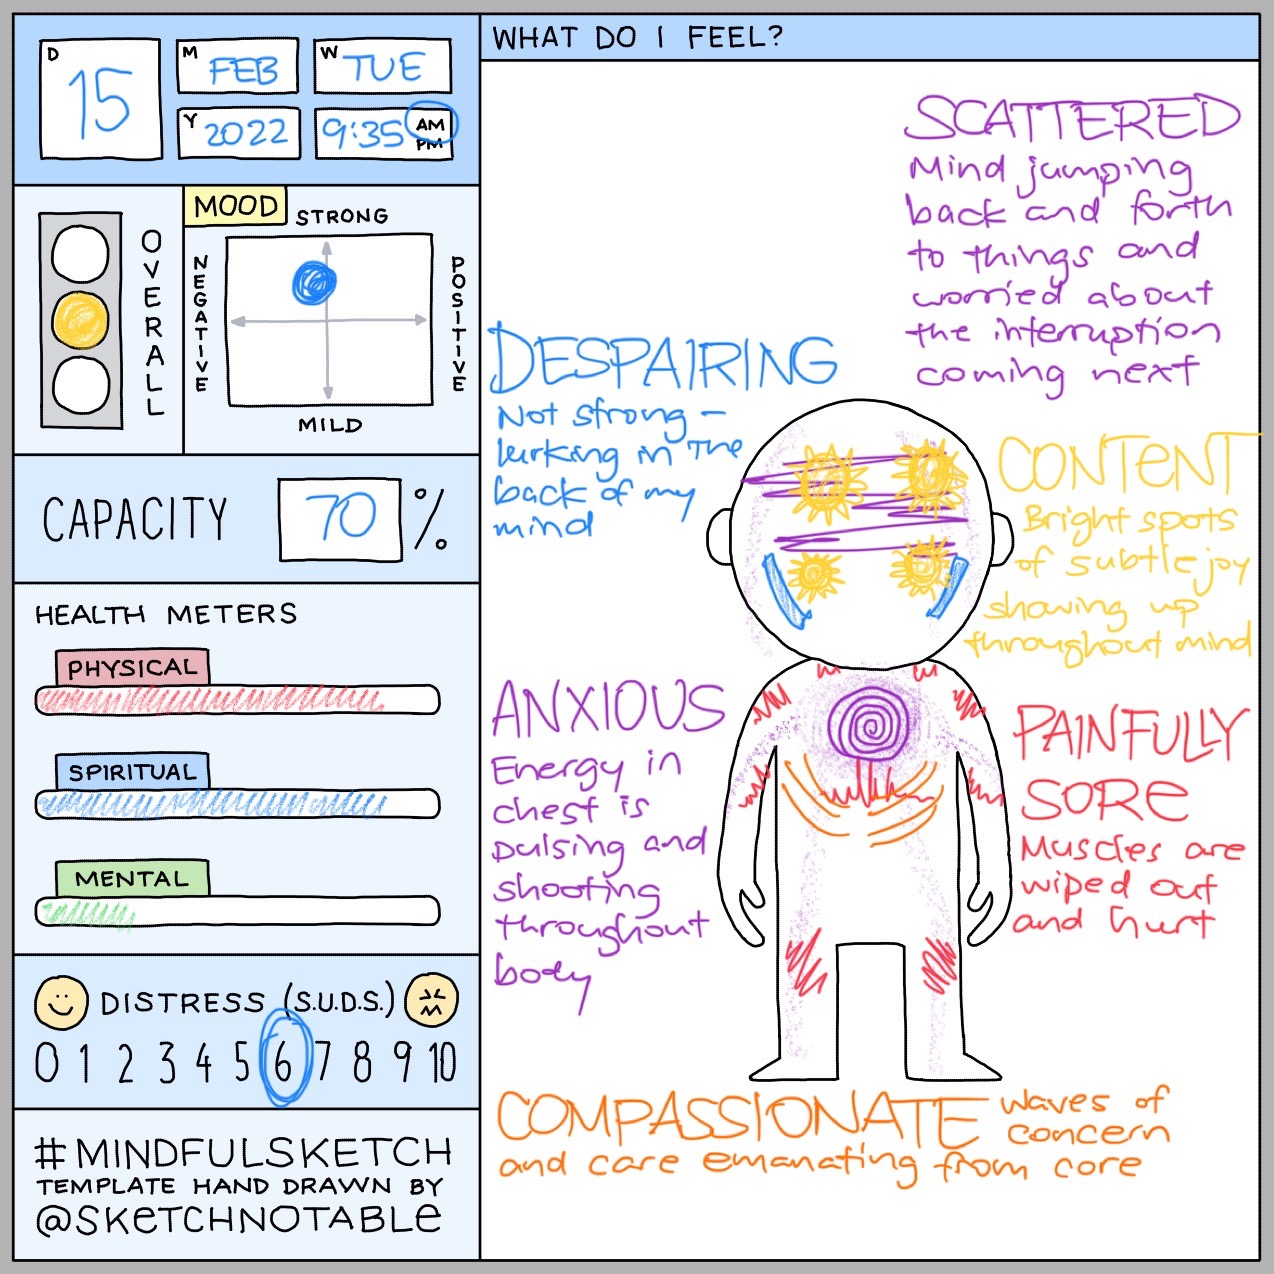 D
15
M
FEB
W
TUE
Y
2022
9:35
AM
PM
OVERALL
MOOD
STRONG
NEGATIVE
POSITIVE
MILD
CAPACITY 70 %
HEALTH METERS
PHYSICAL
SPIRITUAL
MENTAL
DISTRESS (S.U.D.S.)
0 1 2 3 4 5 6 7 8 9 10
#MINDFULSKETCH
TEMPLATE HAND DRAWN BY
@SKETCHNOTABLE
WHAT DO I FEEL?
SCATTERED
Mind jumping
back and forth
to things and
worried about
the interruption
coming next
DESPAIRING
Not strong –
lurking in the
back of my
mind
CONTENT
Bright spots
of subtle joy
showing up
throughout mind
ANXIOUS
Energy in
chest is
pulsing and
shooting
throughout
body
PAINFULLY
SORE
Muscles are
wiped out
and hurt
COMPASSIONATE waves of
concern
and care emanating from core